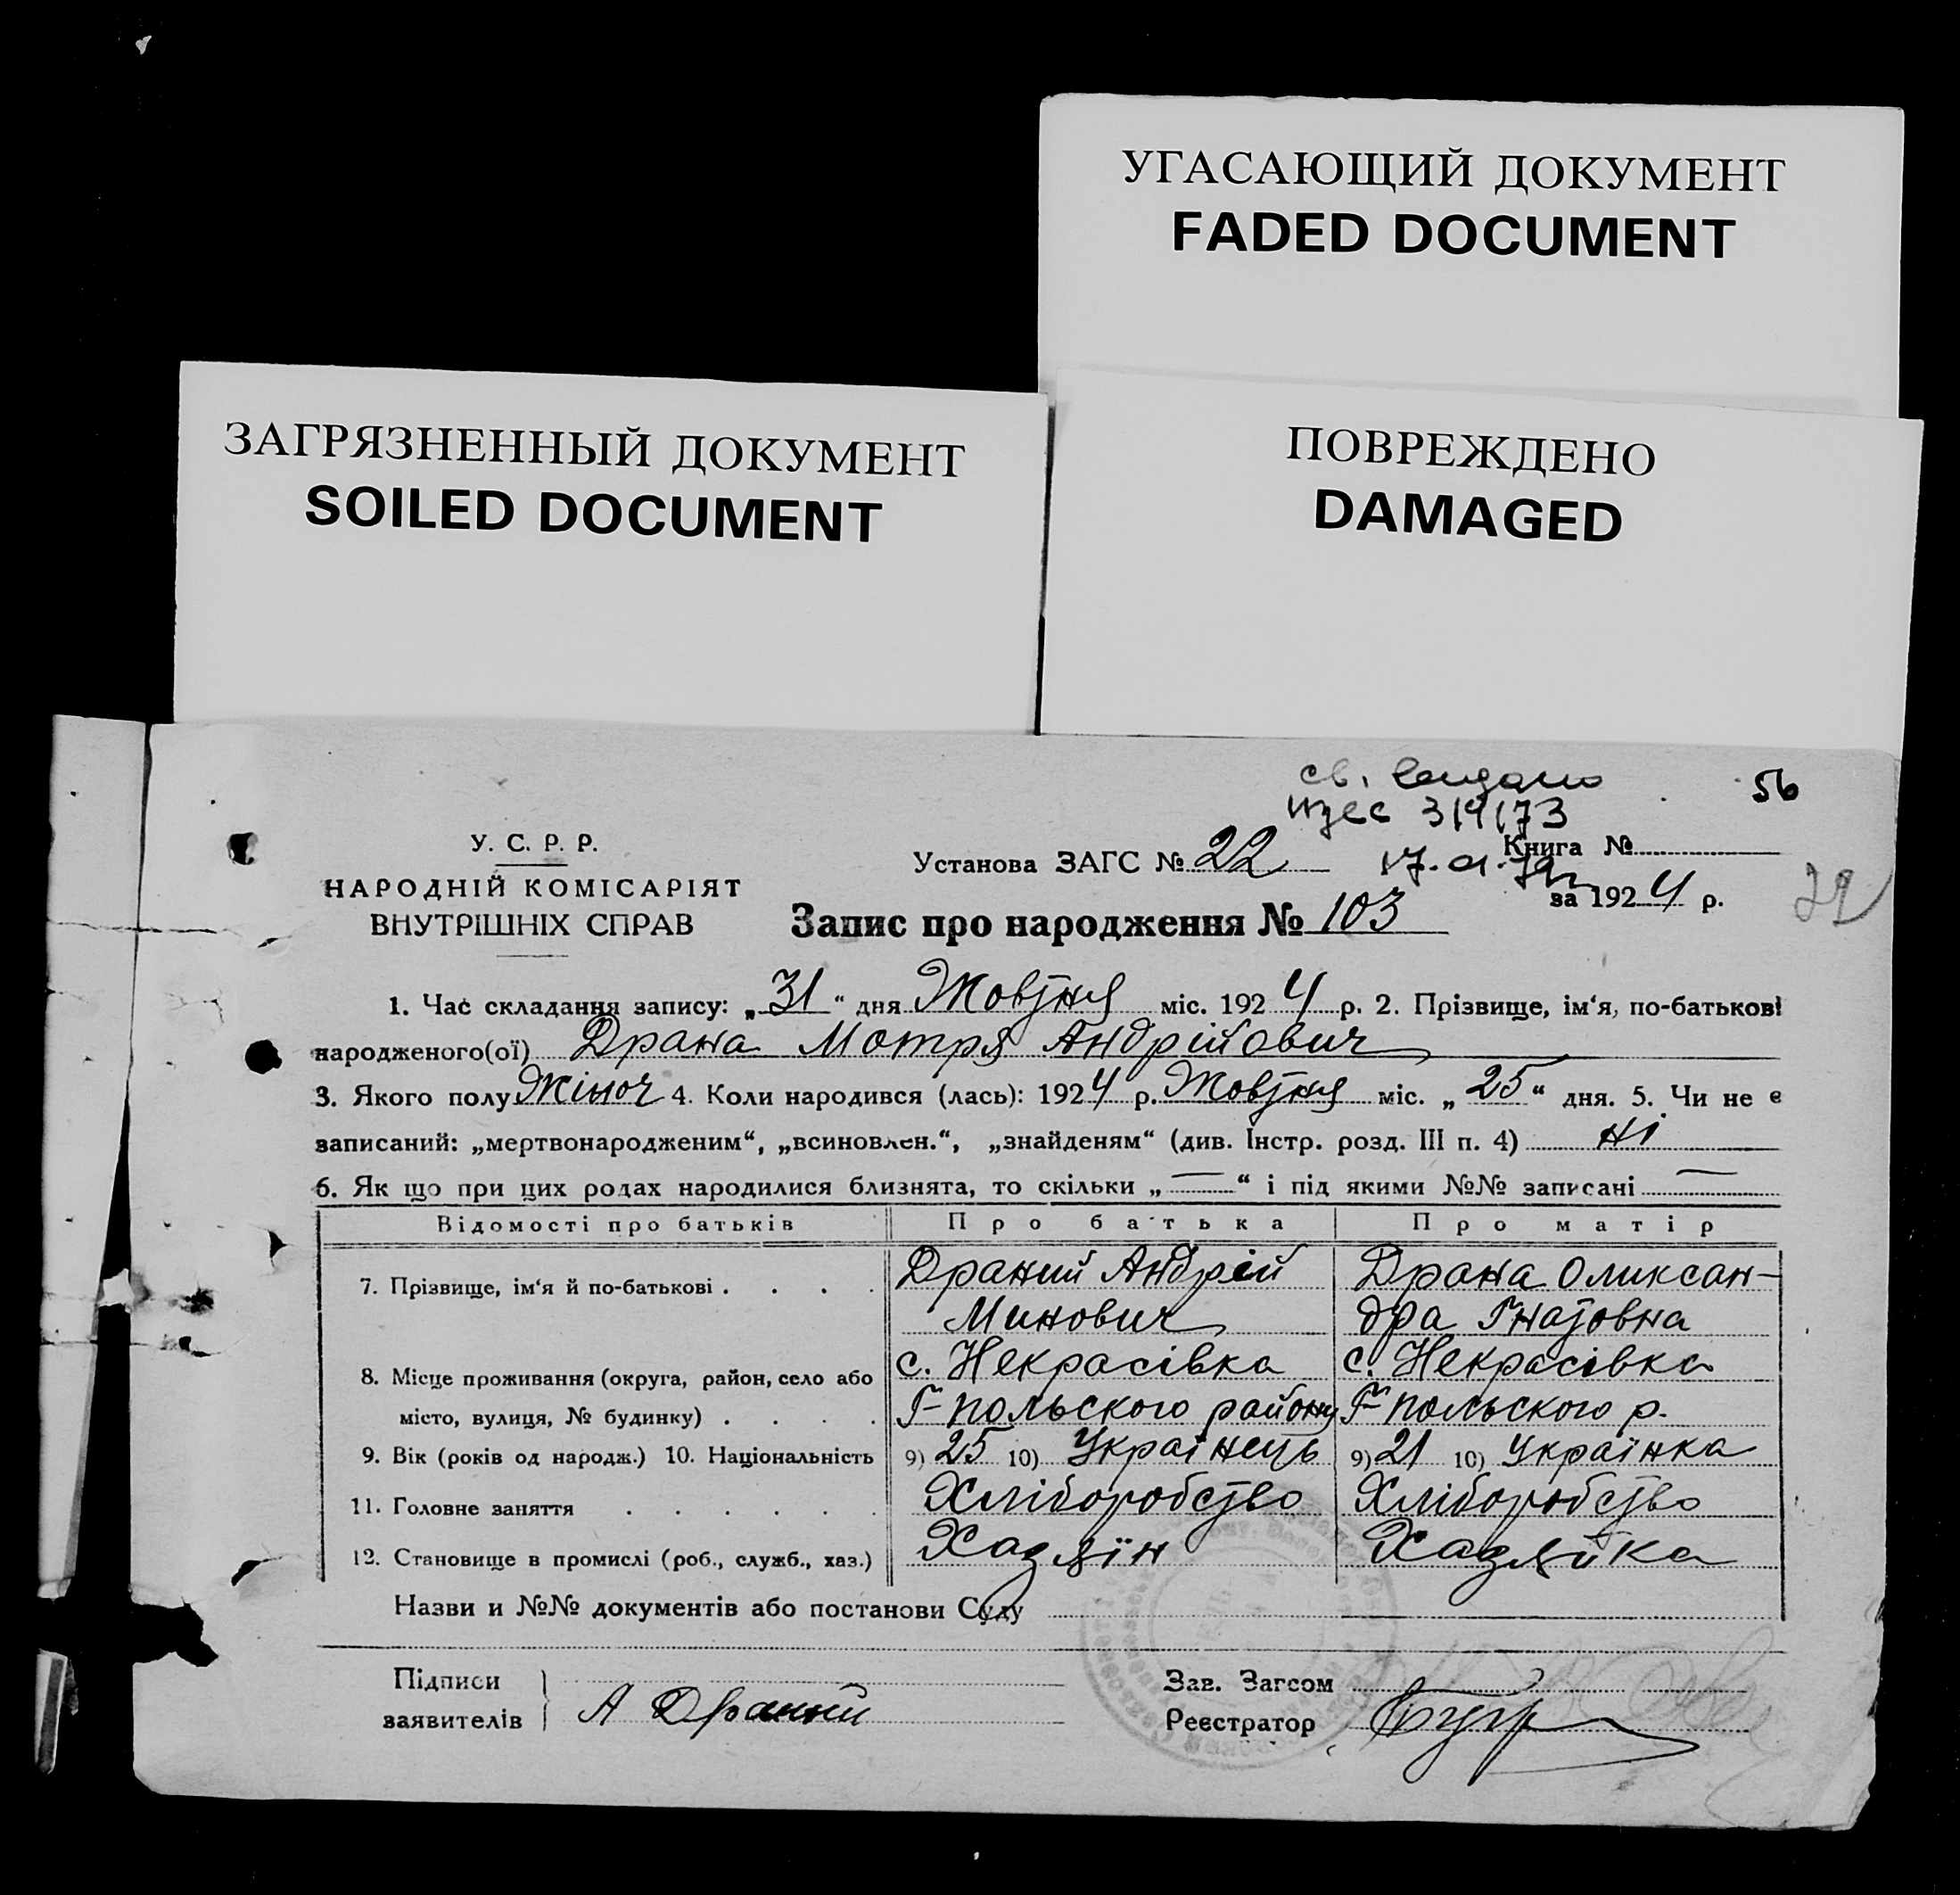 УГАСАЮЩИЙ ДОКУМЕНТ
FADED DOCUMENT
ЗАГРЯЗНЕННЫЙ ДОКУМЕНТ
SOILED DOCUMENT
ПОВРЕЖДЕНО
DAMAGED
св.
56
3/9/73
У. С. Р. Р.
НАРОДНІЙ КОМІСАРІЯТ
ВНУТРІШНІХ СПРАВ
Установа ЗАГС № 22
Книга №
за 1924 р.
Запис про народження № 103
1. Час складання запису: „31“ дня Жовтня міс. 1924 р. 2. Прізвище, ім‘я, по-батькові
народженого(ої) Драна Мотря Андрійович
3. Якого полу Жіноч 4. Коли народився (лась): 1924 р. Жовтня міс. „25“ дня. 5. Чи не є
записаний: „мертвонародженим“, „всиновлен.“, „знайденям“ (див. Інстр. розд. III п. 4) ні
6. Як що при цих родах народилися близнята, то скільки „—“ і під якими №№ записані —
Відомості про батьків Про батька Про матір
7. Прізвище, ім‘я й по-батькові . . . . Драний Андрій Драна Оликсан-
Минович дра Гнатовна
8. Місце проживання (округа, район, село або с. Некрасівка с. Некрасівка
місто, вулиця, № будинку) . . . . Г-польского району Г-польского р.
9. Вік (років од народж.) 10. Національність 9) 25 10) Українець 9) 21 10) Українка
11. Головне заняття . . . . . . Хліборобство Хліборобство
12. Становище в промислі (роб., служб., хаз.) Хазяїн Хазяйка
Назви и №№ документів або постанови Суду
Підписи
заявителів
А Драний
Зав. Загсом
Реєстратор